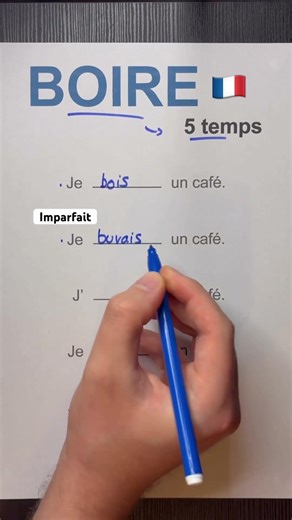 BOIRE
5 temps
Je bois un café.
Imparfait
Je buvais un café.
J'
Je